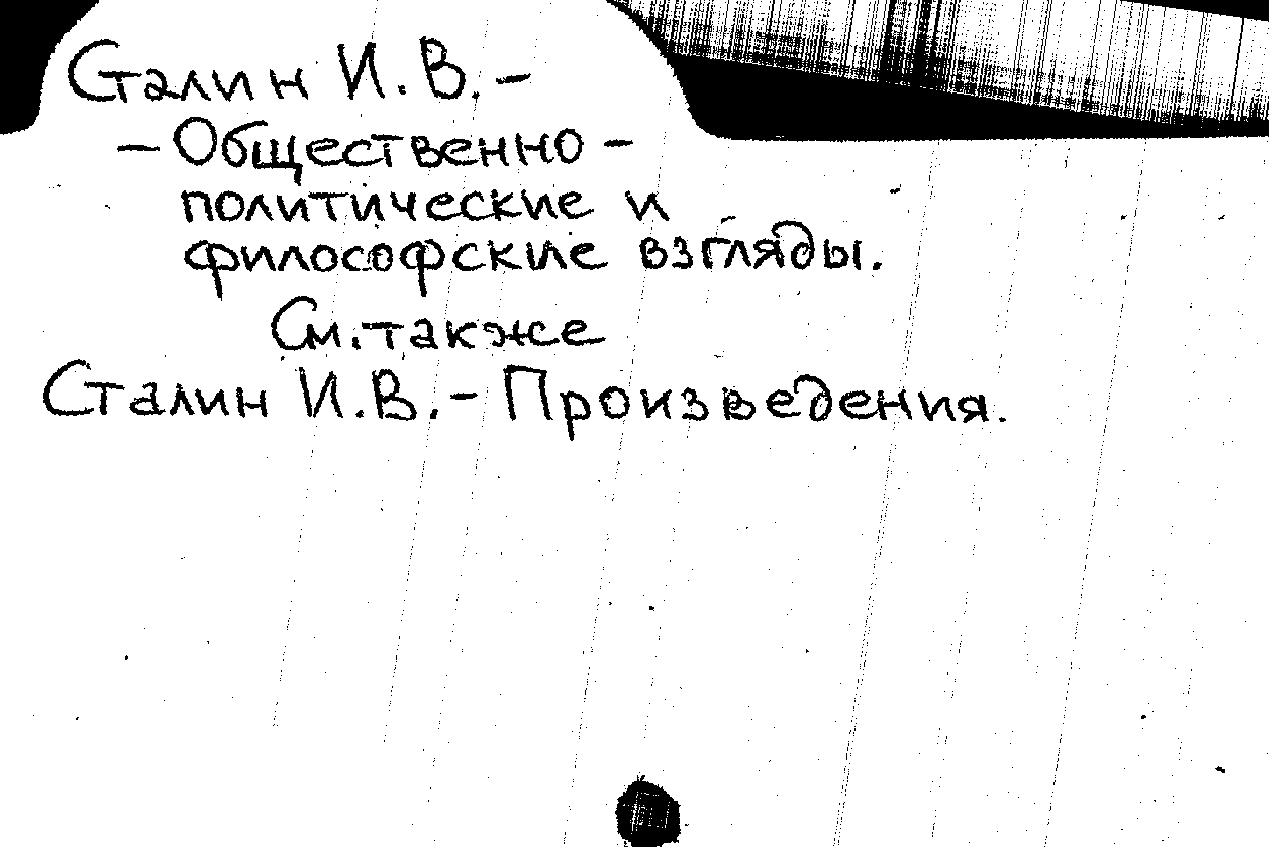 Сталин И.В.-
- Общественно -
политические и
философские взгляды.
См. также
Сталин И.В.- Произведения.